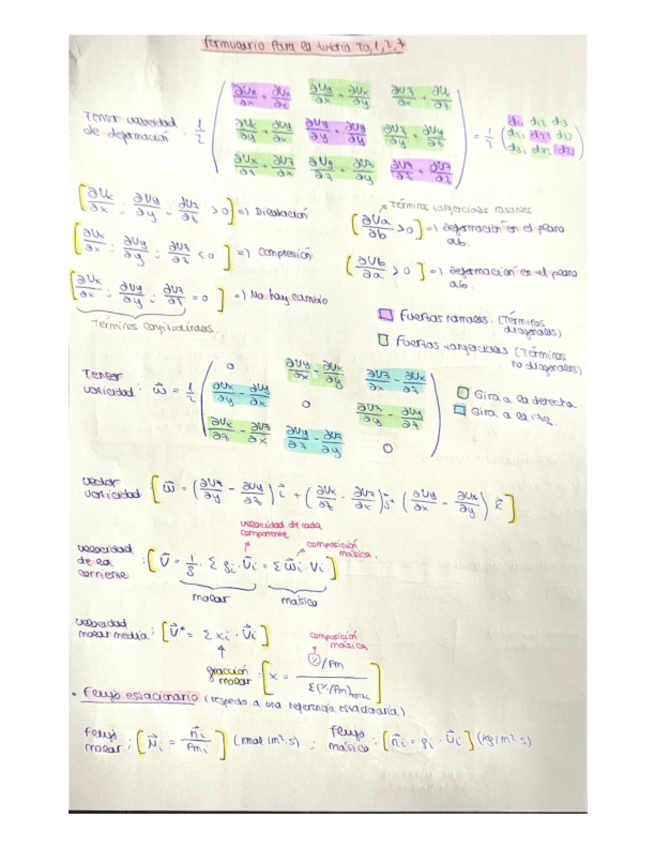 Formulario para la teoría T0,1,2,7
Tensor velocidad de deformación : 1/2 ( ∂Ux/∂x + ∂Ux/∂x   ∂Uy/∂x + ∂Ux/∂y   ∂Uz/∂x + ∂Ux/∂z
∂Ux/∂y + ∂Uy/∂x   ∂Uy/∂y + ∂Uy/∂y   ∂Uz/∂y + ∂Uy/∂z
∂Ux/∂z + ∂Uz/∂x   ∂Uy/∂z + ∂Uz/∂y   ∂Uz/∂z + ∂Uz/∂z ) = 1/2 ( d11 d12 d13
d21 d22 d23
d31 d32 d33 )
[ ∂Ux/∂x ; ∂Uy/∂y ; ∂Uz/∂z > 0 ] => Dilatación
[ ∂Ux/∂x ; ∂Uy/∂y ; ∂Uz/∂z < 0 ] => Compresión
[ ∂Ux/∂x ; ∂Uy/∂y ; ∂Uz/∂z = 0 ] => No hay cambio
Términos longitudinales.
Términos tangenciales
[ ∂Ua/∂b > 0 ] => deformación en el plano ab.
[ ∂Ub/∂a > 0 ] => deformación en el plano ab.
Fuerzas normales. (Términos diagonales)
Fuerzas tangenciales (Términos no diagonales)
Tensor vorticidad : ω = 1/2 ( 0   ∂Uy/∂x - ∂Ux/∂y   ∂Uz/∂x - ∂Ux/∂z
∂Ux/∂y - ∂Uy/∂x   0   ∂Uz/∂y - ∂Uy/∂z
∂Ux/∂z - ∂Uz/∂x   ∂Uy/∂z - ∂Uz/∂y   0 )
Gira a la derecha
Gira a la izq.
Vector vorticidad : [ ω = ( ∂Uz/∂y - ∂Uy/∂z ) i + ( ∂Ux/∂z - ∂Uz/∂x ) j + ( ∂Uy/∂x - ∂Ux/∂y ) k ]
velocidad de cada componente
composición másica.
velocidad de la corriente : [ U = 1/ρ · Σ ρi · Ui = Σ ωi · Vi ]
molar   másica
velocidad molar media : [ U* = Σ xi · Ui ]
fracción molar : [ x = (x)/Pm / Σ(x/Pm) ]
composición másica
• Flujo estacionario (respecto a una referencia estacionaria).
Flujo molar : [ Ni = ni / Pmi ] (kmol/m²·s) ; Flujo másico : [ ni = ρi · Ui ] (kg/m²·s)